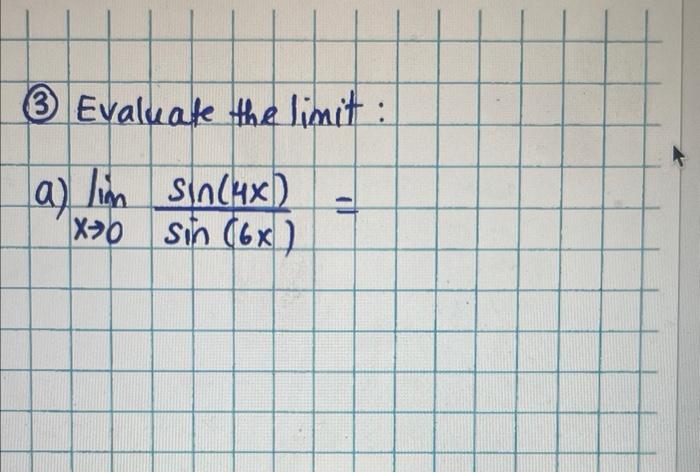 ③ Evaluate the limit :
a) lim sin(4x) =
x→0 sin (6x)